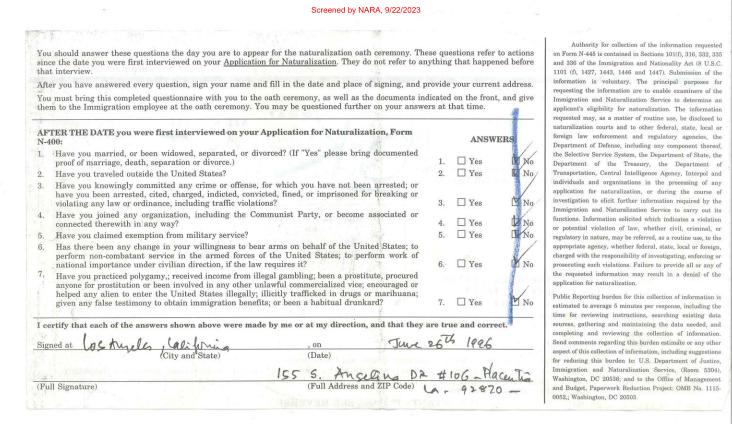 Screened by NARA, 9/22/2023
You should answer these questions the day you are to appear for the naturalization oath ceremony. These questions refer to actions
since the date you were first interviewed on your Application for Naturalization. They do not refer to anything that happened before
that interview.
After you have answered every question, sign your name and fill in the date and place of signing, and provide your current address.
You must bring this completed questionnaire with you to the oath ceremony, as well as the documents indicated on the front, and give
them to the Immigration employee at the oath ceremony. You may be questioned further on your answers at that time.
AFTER THE DATE you were first interviewed on your Application for Naturalization, Form
N-400: ANSWERS
1. Have you married, or been widowed, separated, or divorced? (If "Yes" please bring documented
proof of marriage, death, separation or divorce.) 1. Yes No
2. Have you traveled outside the United States? 2. Yes No
3. Have you knowingly committed any crime or offense, for which you have not been arrested; or
have you been arrested, cited, charged, indicted, convicted, fined, or imprisoned for breaking or
violating any law or ordinance, including traffic violations? 3. Yes No
4. Have you joined any organization, including the Communist Party, or become associated or
connected therewith in any way? 4. Yes No
5. Have you claimed exemption from military service? 5. Yes No
6. Has there been any change in your willingness to bear arms on behalf of the United States; to
perform non-combatant service in the armed forces of the United States; to perform work of
national importance under civilian direction, if the law requires it? 6. Yes No
7. Have you practiced polygamy,; received income from illegal gambling; been a prostitute, procured
anyone for prostitution or been involved in any other unlawful commercialized vice; encouraged or
helped any alien to enter the United States illegally; illicitly trafficked in drugs or marihuana;
given any false testimony to obtain immigration benefits; or been a habitual drunkard? 7. Yes No
I certify that each of the answers shown above were made by me or at my direction, and that they are true and correct.
Signed at Los Angeles, California, on June 26th 1996
(City and State) (Date)
155 S. Angelina DR #106 - Placentia
(Full Signature) (Full Address and ZIP Code) 92870 -
Authority for collection of the information requested
on Form N-445 is contained in Sections 101(f), 316, 332, 335
and 336 of the Immigration and Nationality Act (8 U.S.C.
1101 (f), 1427, 1443, 1446 and 1447). Submission of the
information is voluntary. The principal purposes for
requesting the information are to enable examiners of the
Immigration and Naturalization Service to determine an
applicant's eligibility for naturalization. The information
requested may, as a matter of routine use, be disclosed to
naturalization courts and to other federal, state, local or
foreign law enforcement and regulatory agencies, the
Department of Defense, including any component thereof,
the Selective Service System, the Department of State, the
Department of the Treasury, the Department of
Transportation, Central Intelligence Agency, Interpol and
individuals and organizations in the processing of any
application for naturalization, or during the course of
investigation to elicit further information required by the
Immigration and Naturalization Service to carry out its
functions. Information solicited which indicates a violation
or potential violation of law, whether civil, criminal, or
regulatory in nature, may be referred, as a routine use, to the
appropriate agency, whether federal, state, local or foreign,
charged with the responsibility of investigating, enforcing or
prosecuting such violations. Failure to provide all or any of
the requested information may result in a denial of the
application for naturalization.
Public Reporting burden for this collection of information is
estimated to average 5 minutes per response, including the
time for reviewing instructions, searching existing data
sources, gathering and maintaining the data needed, and
completing and reviewing the collection of information.
Send comments regarding this burden estimate or any other
aspect of this collection of information, including suggestions
for reducing this burden to: U.S. Department of Justice,
Immigration and Naturalization Service, (Room 5304),
Washington, DC 20536; and to the Office of Management
and Budget, Paperwork Reduction Project: OMB No. 1115-
0052,; Washington, DC 20503.